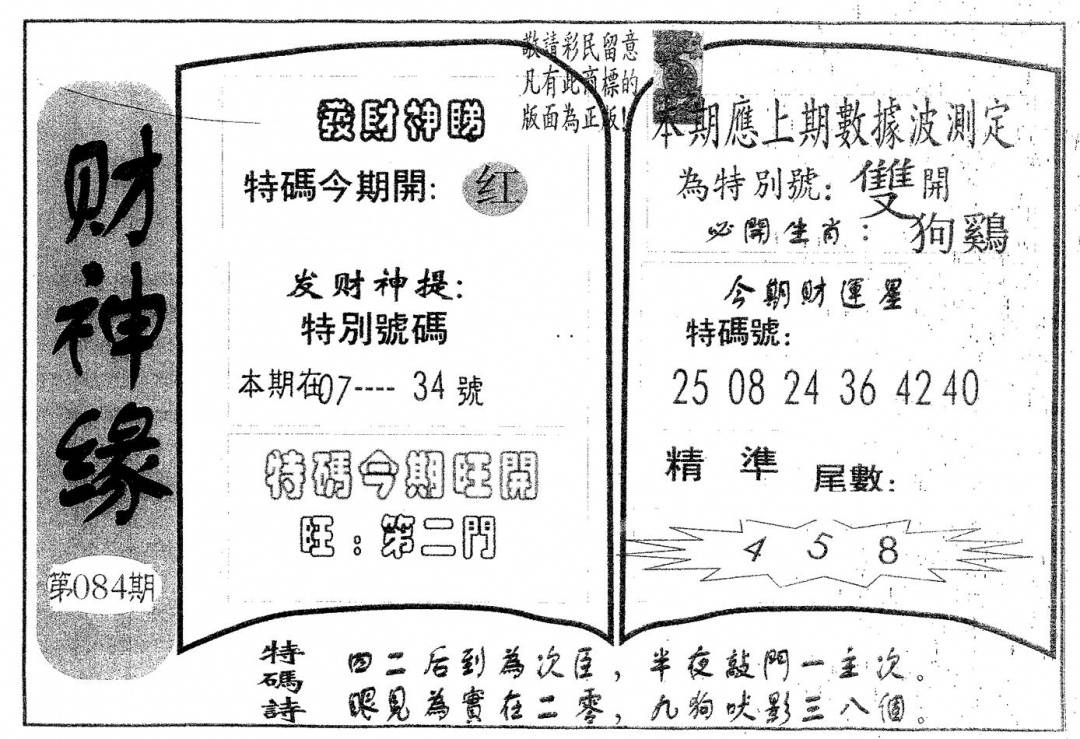 财神缘
第084期
敬請彩民留意
凡有此商標的
版面為正版!
發財神睇
特碼今期開: 红
发财神提:
特別號碼
本期在07----34號
特碼今期旺開
旺:第二門
本期應上期數據波測定
為特別號:雙開
必開生肖:狗鷄
今期财運星
特碼號:
25 08 24 36 42 40
精準尾數:
4 5 8
特碼詩
四二后到為次臣,半夜敲門一主次。
眼見為實在二零,九狗吠影三八個。